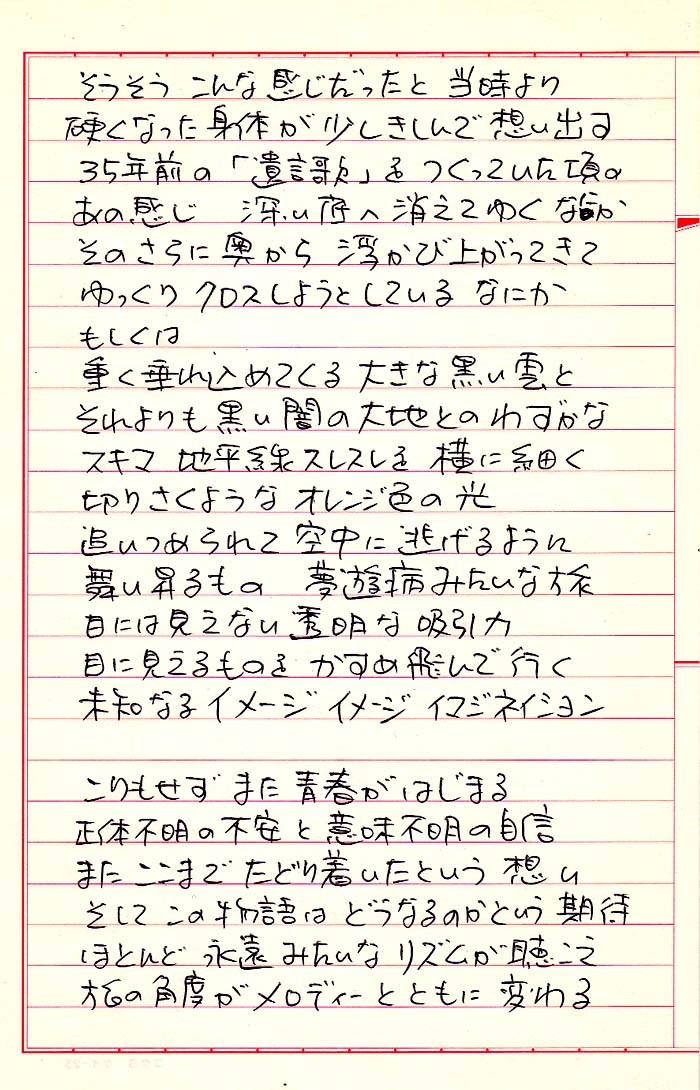 そうそう こんな感じだったと 当時より
硬くなった身体が少しきしんで想い出す
35年前の「遺言歌」をつくっていた頃の
あの感じ 深い 消えてゆくなにか
そのさらに奥から 浮かび上がってきて
ゆっくり クロスしようとしている なにか
もしくは
重く垂れ込めてくる 大きな黒い雲と
それよりも黒い闇の大地とのわずかな
スキマ 地平線スレスレを 横に細く
切りさくような オレンジ色の光
追いつめられて 空中に 逃げるように
舞い昇るもの 夢遊病みたいな旅
目には見えない 透明な 吸引力
目に見えるものを かすめ飛んで行く
未知なるイメージ イメージ イマジネイション
こりもせず また青春がはじまる
正体不明の不安と 意味不明の自信
またここまで たどり着いたという 想い
そして この物語は どうなるのかという 期待
ほとんど 永遠みたいな リズムが聴こえ
旅の角度が メロディーとともに 変わる